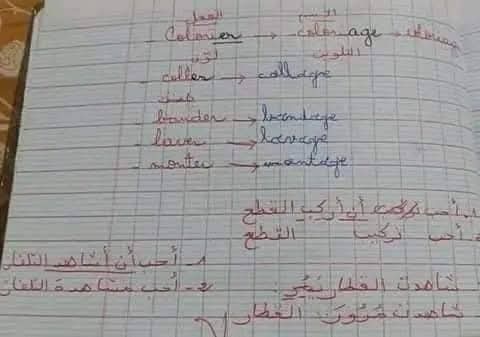 الفعل الاسم
- Colorier → coloriage → coloriage
لوّن التلوين
- coller → collage
- bander → bandage
- laver → lavage
- monter → montage
1- أحب أن أركب القطع
2- أحب تركيب القطع
1- أحب أن أشاهد التلفاز
2- أحب مشاهدة التلفاز
شاهدت القطار يمر
شاهدت مرور القطار